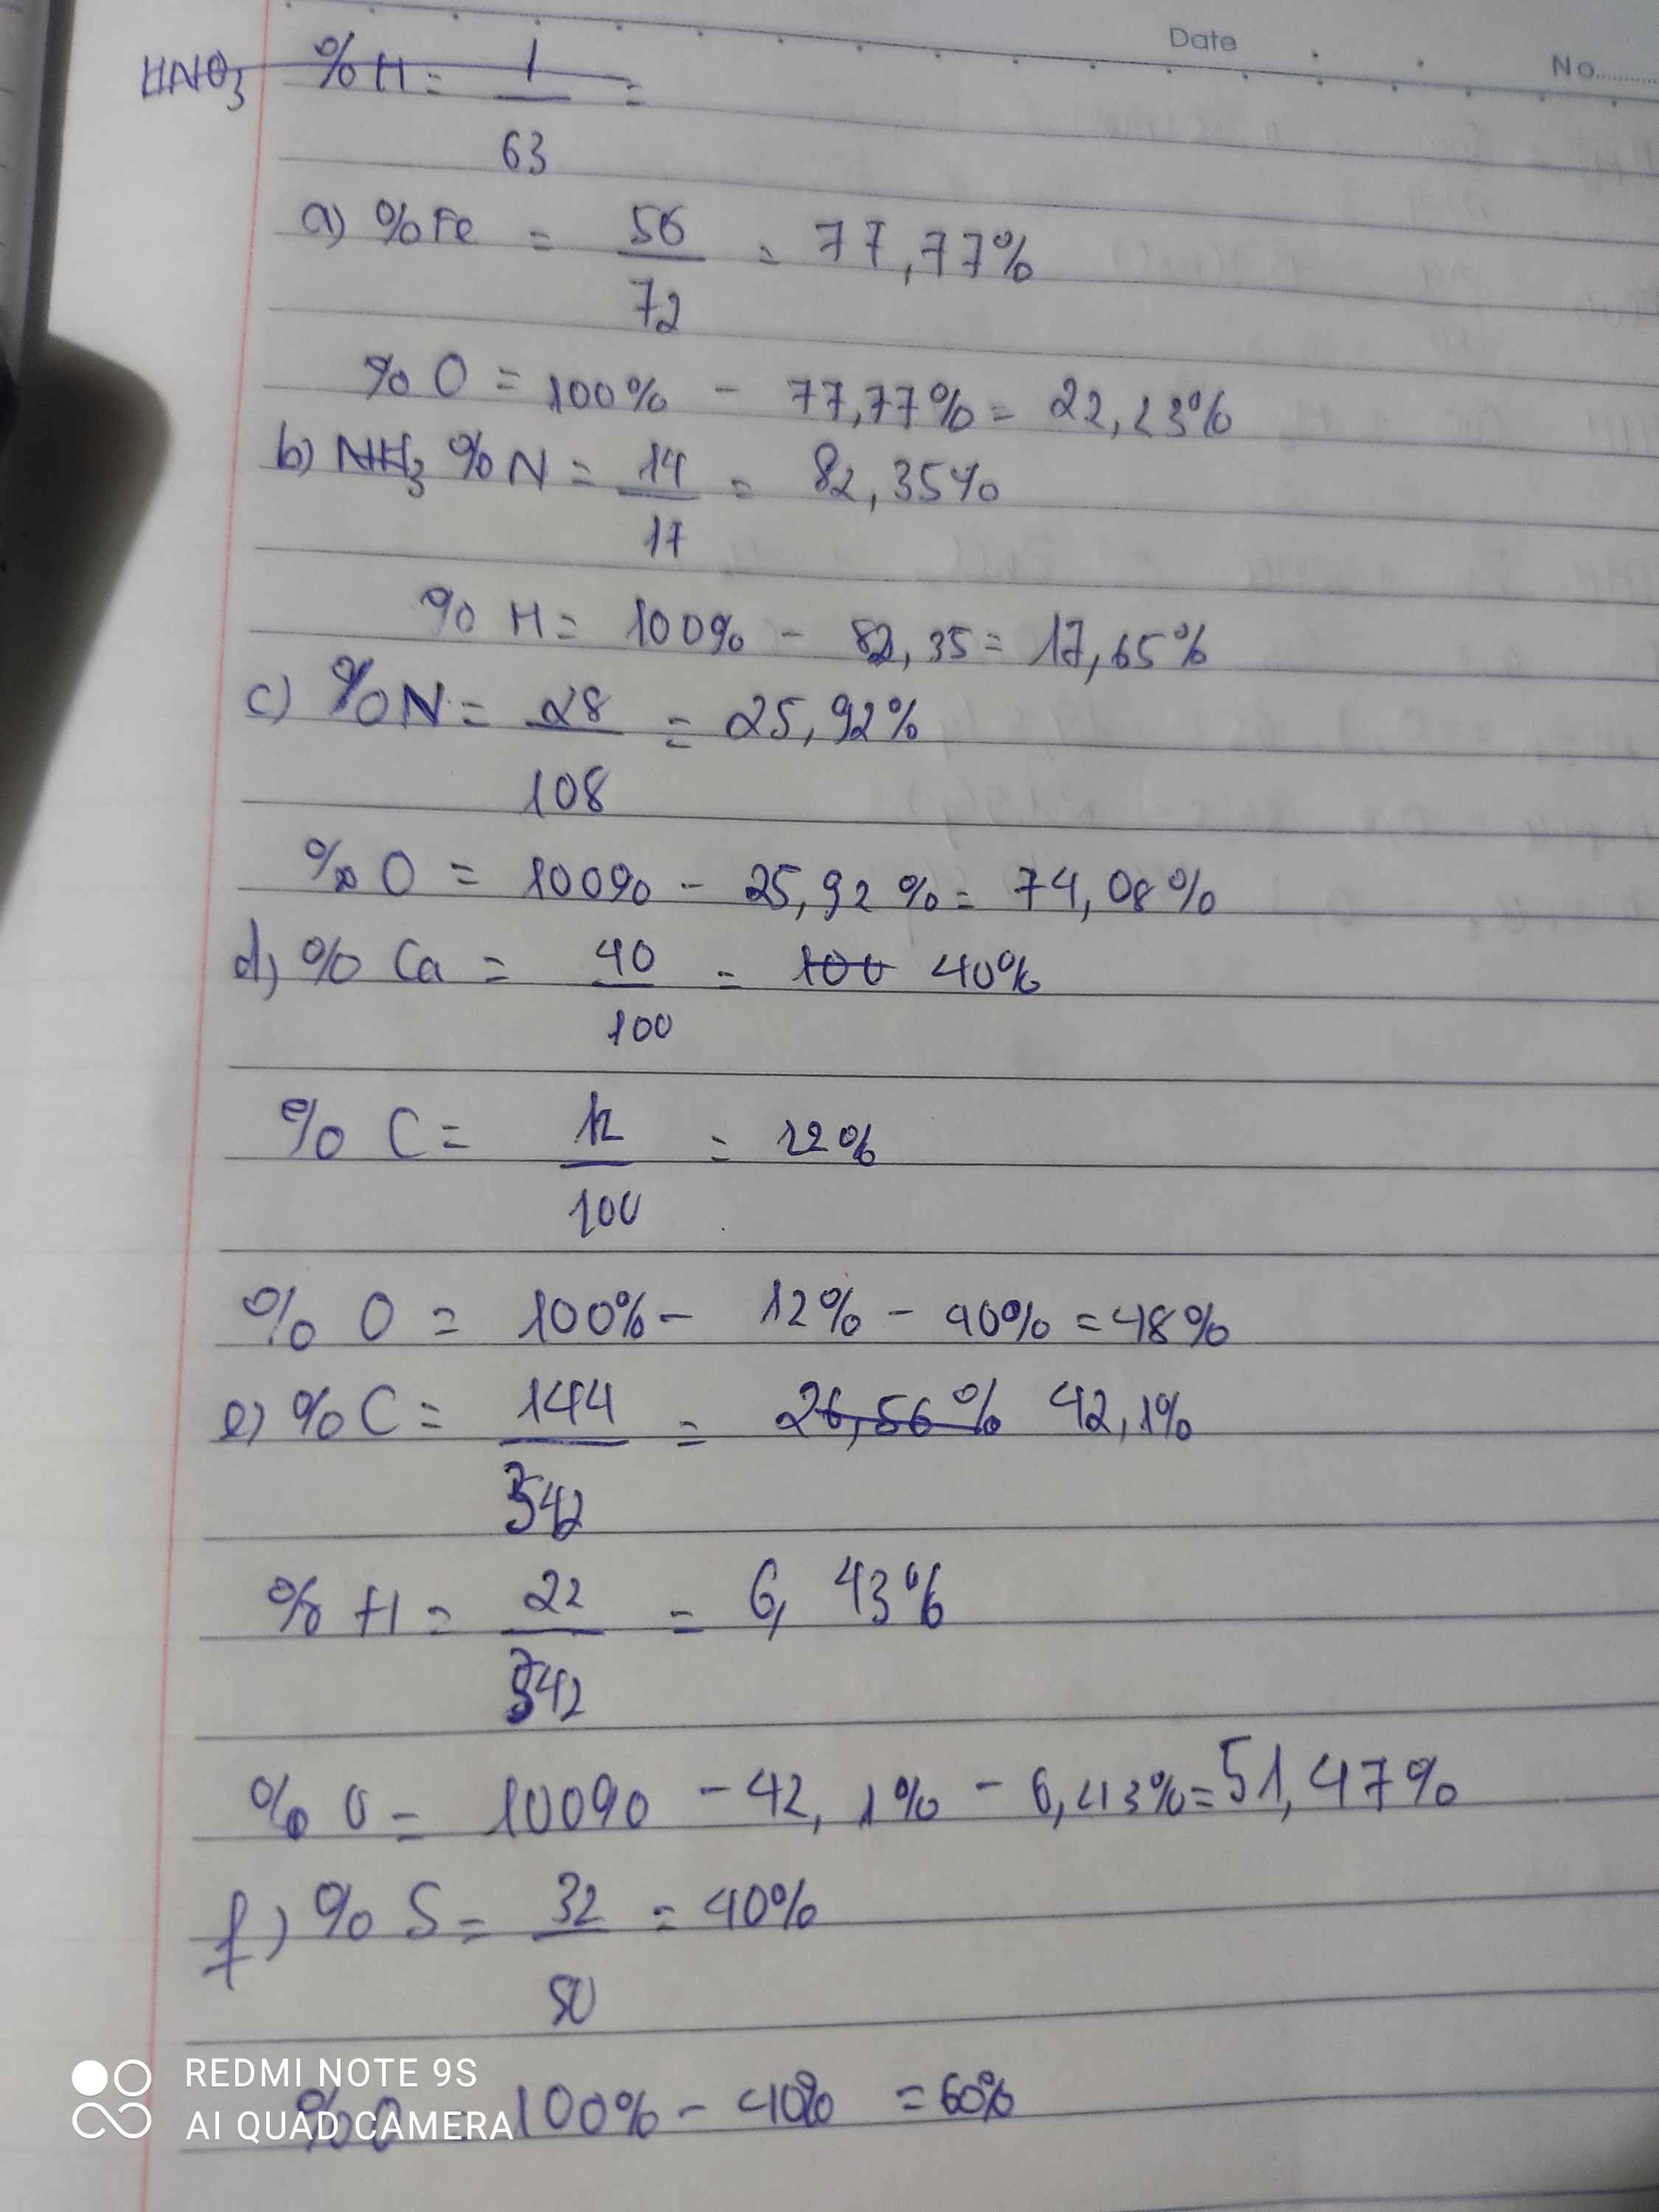 Date
No..........
HNO3 %H = 1 =
63
a) %Fe = 56 = 77,77%
72
%O = 100% - 77,77% = 22,23%
b) NH3 %N = 14 = 82,35%
17
%H = 100% - 82,35 = 17,65%
c) %N = 28 = 25,92%
108
%O = 100% - 25,92% = 74,08%
d) %Ca = 40 = 100 40%
100
%C = 12 = 12%
100
%O = 100% - 12% - 40% = 48%
e) %C = 144 = 26,56% 42,1%
342
%H = 22 = 6,43%
342
%O = 100% - 42,1% - 6,43% = 51,47%
f) %S = 32 = 40%
80
%O = 100% - 40% = 60%
REDMI NOTE 9S
AI QUAD CAMERA